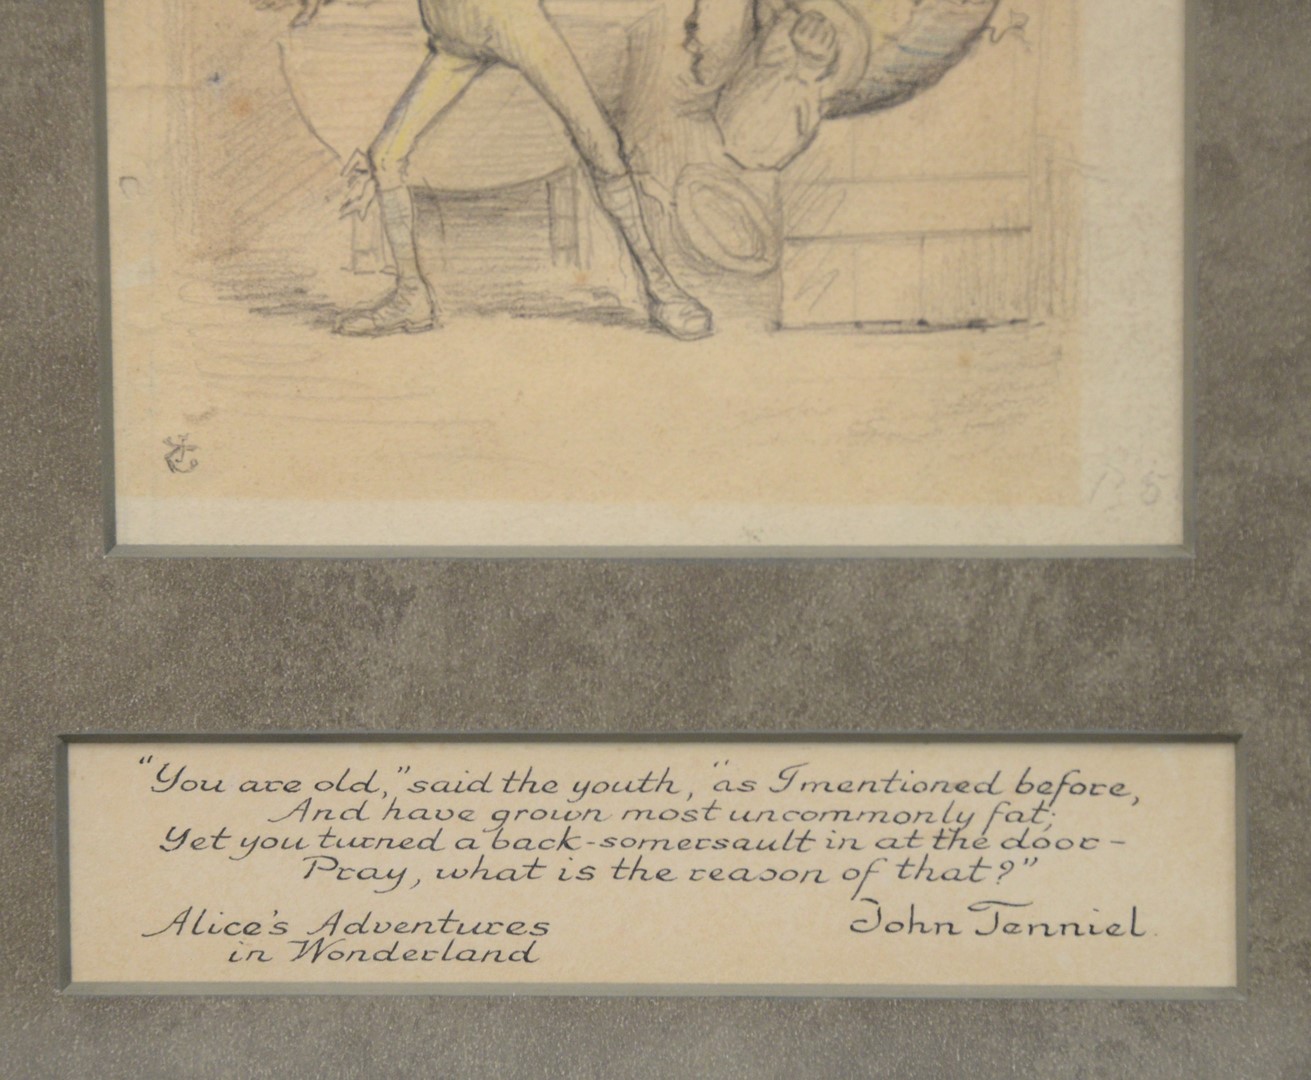 "You are old," said the youth, "as I mentioned before,
And have grown most uncommonly fat;
Yet you turned a back-somersault in at the door-
Pray, what is the reason of that?"
Alice's Adventures
in Wonderland
John Tenniel